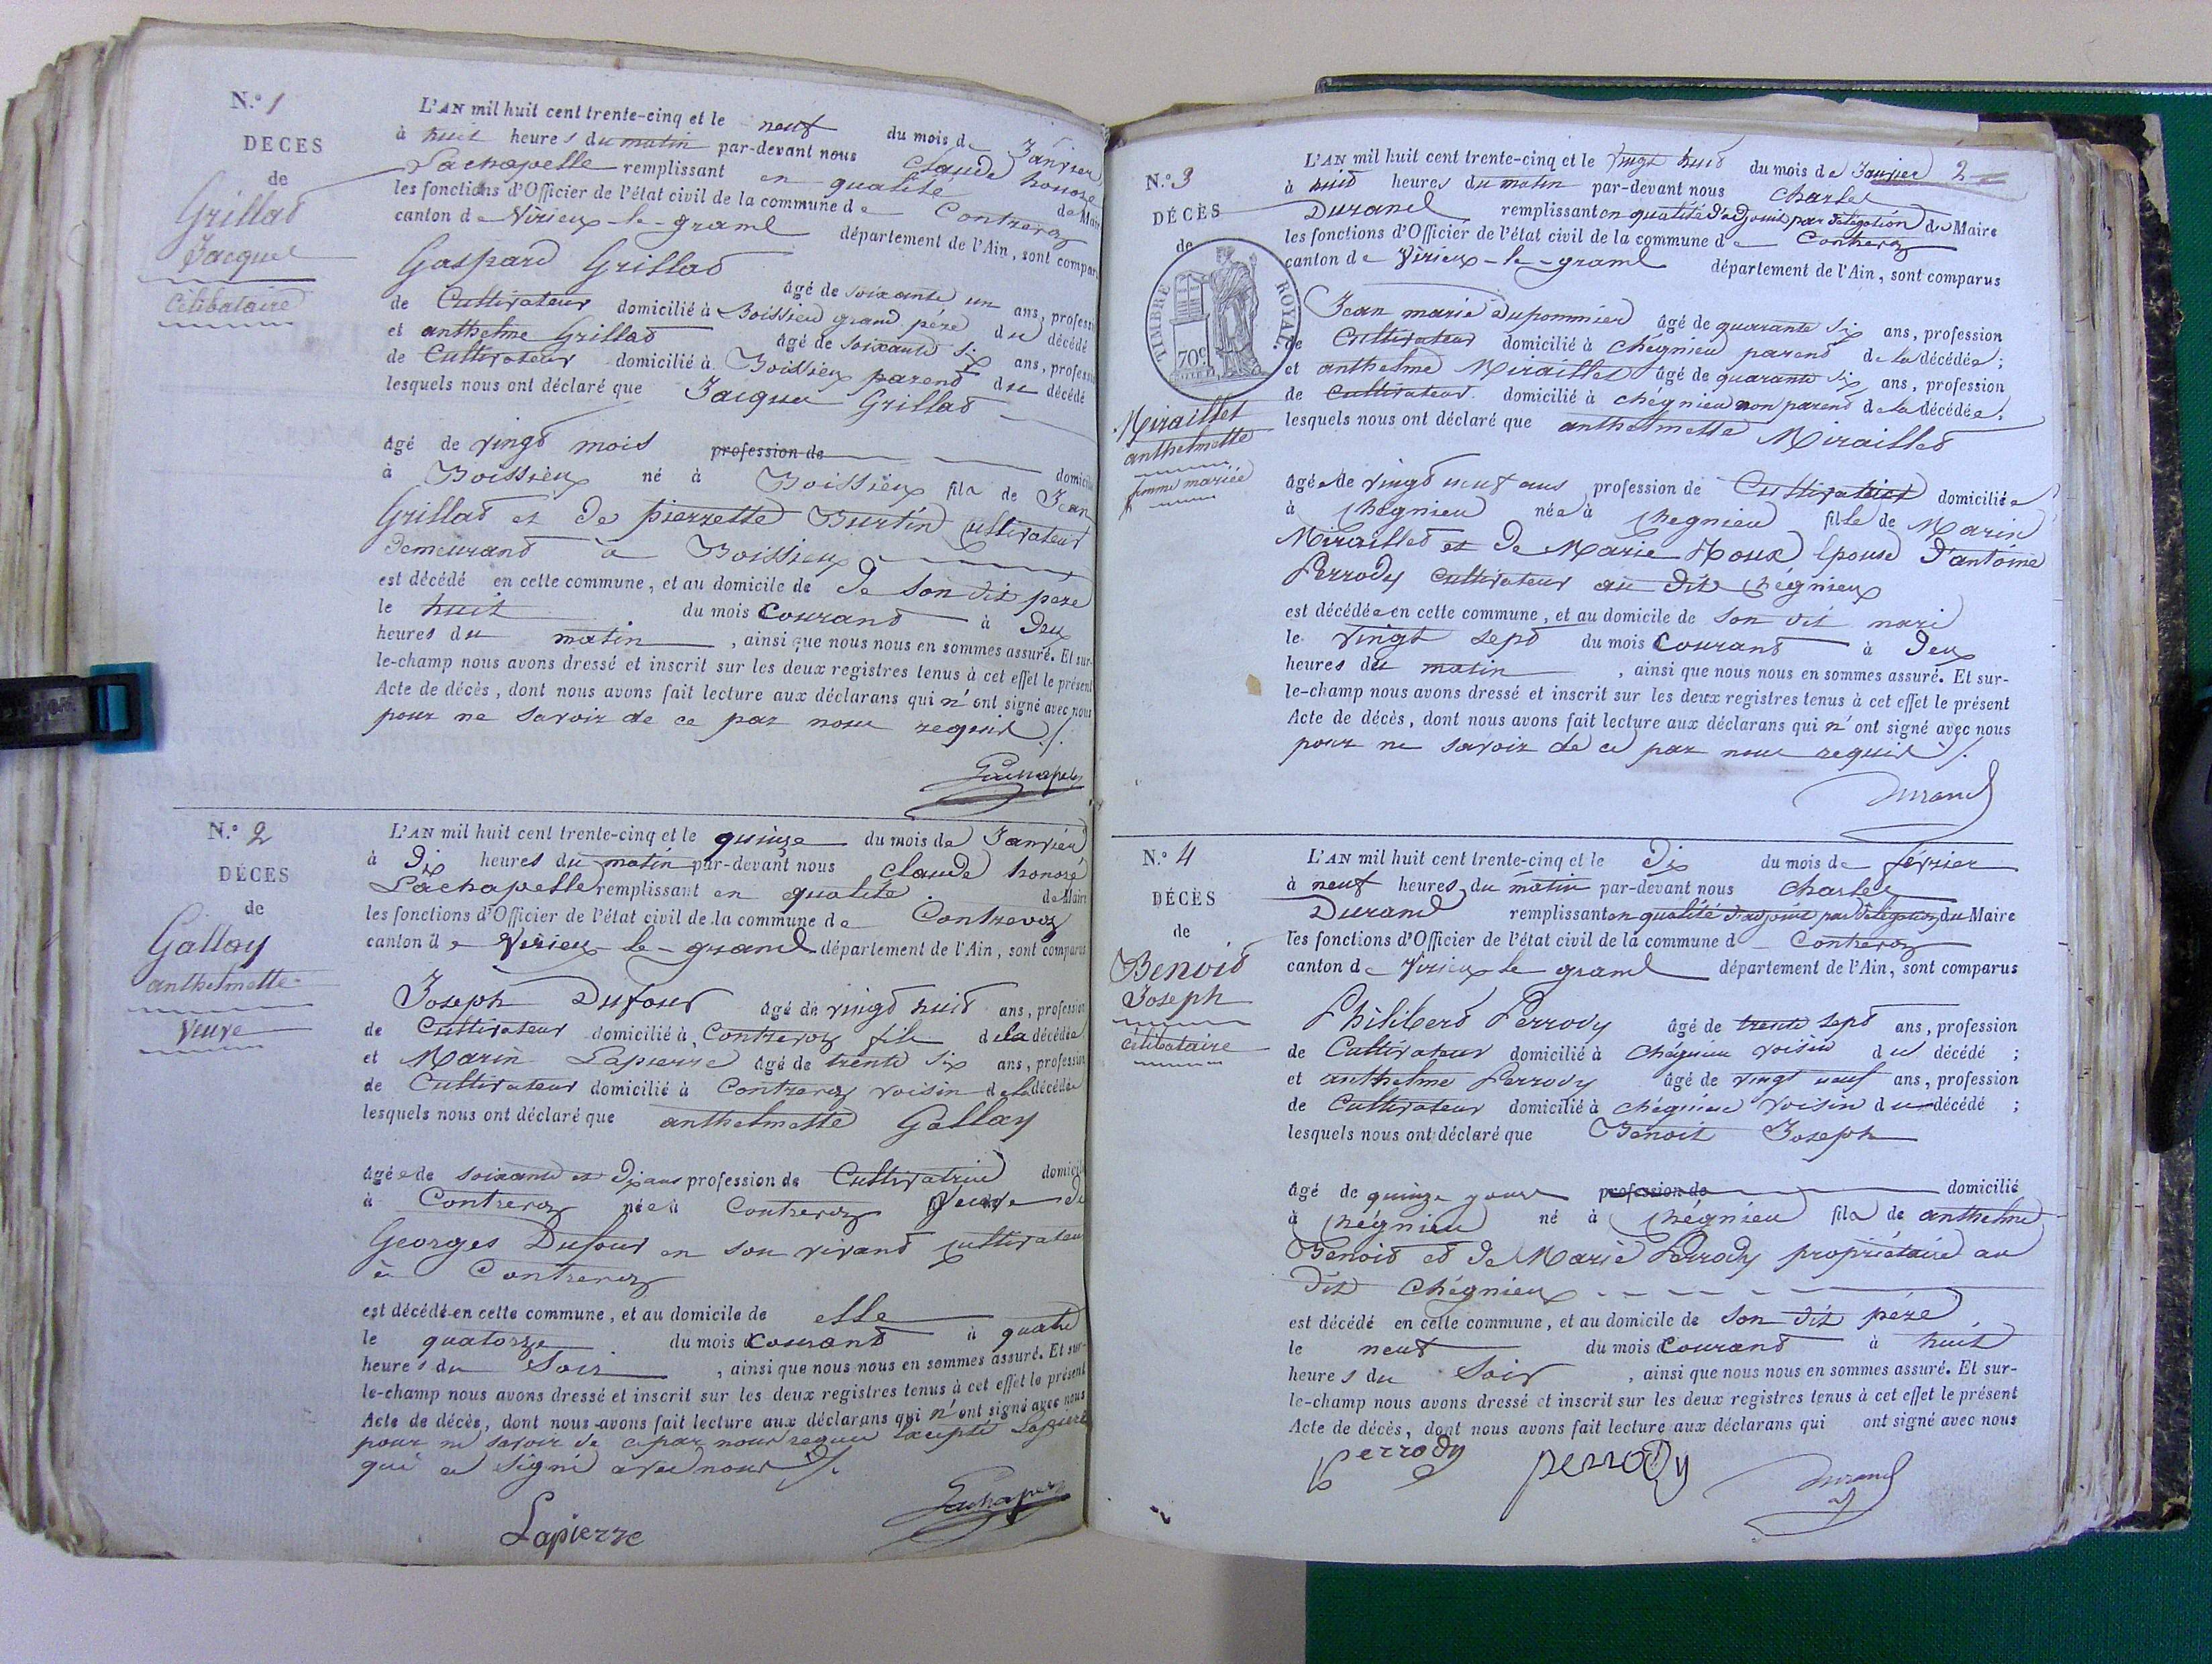 N.° 1
DECES
de
Grillat
Jacques
Célibataire
L'AN mil huit cent trente-cinq et le neuf du mois de Janvier
à huit heures du matin par-devant nous Claude honoré
Lachapelle remplissant en qualité de Mair
les fonctions d'Officier de l'état civil de la commune de Contrevoz
canton de Virieux-le-grand département de l'Ain, sont compar
Gaspard Grillat âgé de soixante un ans, professi
de Cultivateur domicilié à Boissieu grand père du décédé
et anthelme Grillat âgé de soixante six ans, professi
de Cultivateur domicilié à Boissieux parend du décédé
lesquels nous ont déclaré que Jacques Grillat
âgé de vingt mois profession de domicilié
à Boissieux né à Boissieux fils de Jean
Grillat et de pierrette Burtin Cultivateur
demeurand à Boissieux
est décédé en cette commune, et au domicile de de son dit père
le huit du mois Courand à deux
heures du matin, ainsi que nous nous en sommes assuré. Et sur-
le-champ nous avons dressé et inscrit sur les deux registres tenus à cet effet le présent
Acte de décès, dont nous avons fait lecture aux déclarans qui n'ont signé avec nous
pour ne savoir de ce par nous requis ./.
N.° 2
DÉCES
de
Gallay
anthelmette
Veuve
L'AN mil huit cent trente-cinq et le quinze du mois de Janvier
à Dix heures du matin par-devant nous claude honoré
Lachapelle remplissant en qualité de Maire
les fonctions d'Officier de l'état civil de la commune de Contrevoz
canton de Virieu-le-grand département de l'Ain, sont comparus
Joseph Dufour âgé de vingt huit ans, profession
de Cultivateur domicilié à Contrevoz fils de la décédée
et Marin Lapierre âgé de trente six ans, profession
de Cultivateur domicilié à Contrevoz voisin de la décédée
lesquels nous ont déclaré que anthelmette Gallay
âgée de soixante et Dix ans profession de Cultivatrice domicil
à Contrevoz née à Contrevoz Veuve de
Georges Dufour en son vivand cultivateur
à Contrevoz
est décédé en cette commune, et au domicile de elle
le quatorze du mois Courand à quatre
heures du Soir, ainsi que nous nous en sommes assuré. Et sur-
le-champ nous avons dressé et inscrit sur les deux registres tenus à cet effet le présent
Acte de décès, dont nous avons fait lecture aux déclarans qui n'ont signé avec nous
pour ne savoir de ce par nous requis Excepté Lapierre
qui a signé avec nous ./.
Lapierre
N.° 3
DÉCÈS
de
TIMBRE ROYAL.
70c
Miraillet
anthelmette
femme mariée
2
L'AN mil huit cent trente-cinq et le vingt huit du mois de Janvier
à huit heures du matin par-devant nous Charles
Durand remplissant en qualité d'adjoint par délégation du Maire
les fonctions d'Officier de l'état civil de la commune de Contrevoz
canton de Virieux-le-grand département de l'Ain, sont comparus
Jean marie Dupommier âgé de quarante six ans, profession
de Cultivateur domicilié à chégnieu parend de la décédée;
et anthelme Miraillet âgé de quarante six ans, profession
de cultivateur domicilié à chegnieu non parend de la décédée;
lesquels nous ont déclaré que anthelmette Miraillet
âgée de vingt neuf ans profession de Cultivatrice domiciliée
à Chégnieu née à Chegnieu fille de Marin
Miraillet et de Marie Roux Epouse d'antoine
Perrody cultivateur au dit chégnieux
est décédée en cette commune, et au domicile de son dit mari
le vingt sept du mois Courand à deux
heures du matin, ainsi que nous nous en sommes assuré. Et sur-
le-champ nous avons dressé et inscrit sur les deux registres tenus à cet effet le présent
Acte de décès, dont nous avons fait lecture aux déclarans qui n'ont signé avec nous
pour ne savoir de ce par nous requis ./.
Durand
N.° 4
DÉCÈS
de
Benoit
Joseph
célibataire
L'AN mil huit cent trente-cinq et le Dix du mois de fevrier
à neuf heures du matin par-devant nous Charles
Durand remplissant en qualité d'adjoint par délégation du Maire
les fonctions d'Officier de l'état civil de la commune de Contrevoz
canton de Virieux le grand département de l'Ain, sont comparus
Philibert Perrody âgé de trente sept ans, profession
de Cultivateur domicilié à chégnieu voisin du décédé ;
et anthelme Perrody âgé de vingt neuf ans, profession
de Cultivateur domicilié à chégnieu voisin du décédé ;
lesquels nous ont déclaré que Benoit Joseph
âgé de quinze jours profession de domicilié
à Chégnieu né à Chégnieu fils de anthelme
Benoit et de Marie Perrody propriétaire au
dit Chégnieux
est décédé en cette commune, et au domicile de son dit père
le neuf du mois Courand à huit
heures du Soir, ainsi que nous nous en sommes assuré. Et sur-
le-champ nous avons dressé et inscrit sur les deux registres tenus à cet effet le présent
Acte de décès, dont nous avons fait lecture aux déclarans qui ont signé avec nous
perrody perrody Durand